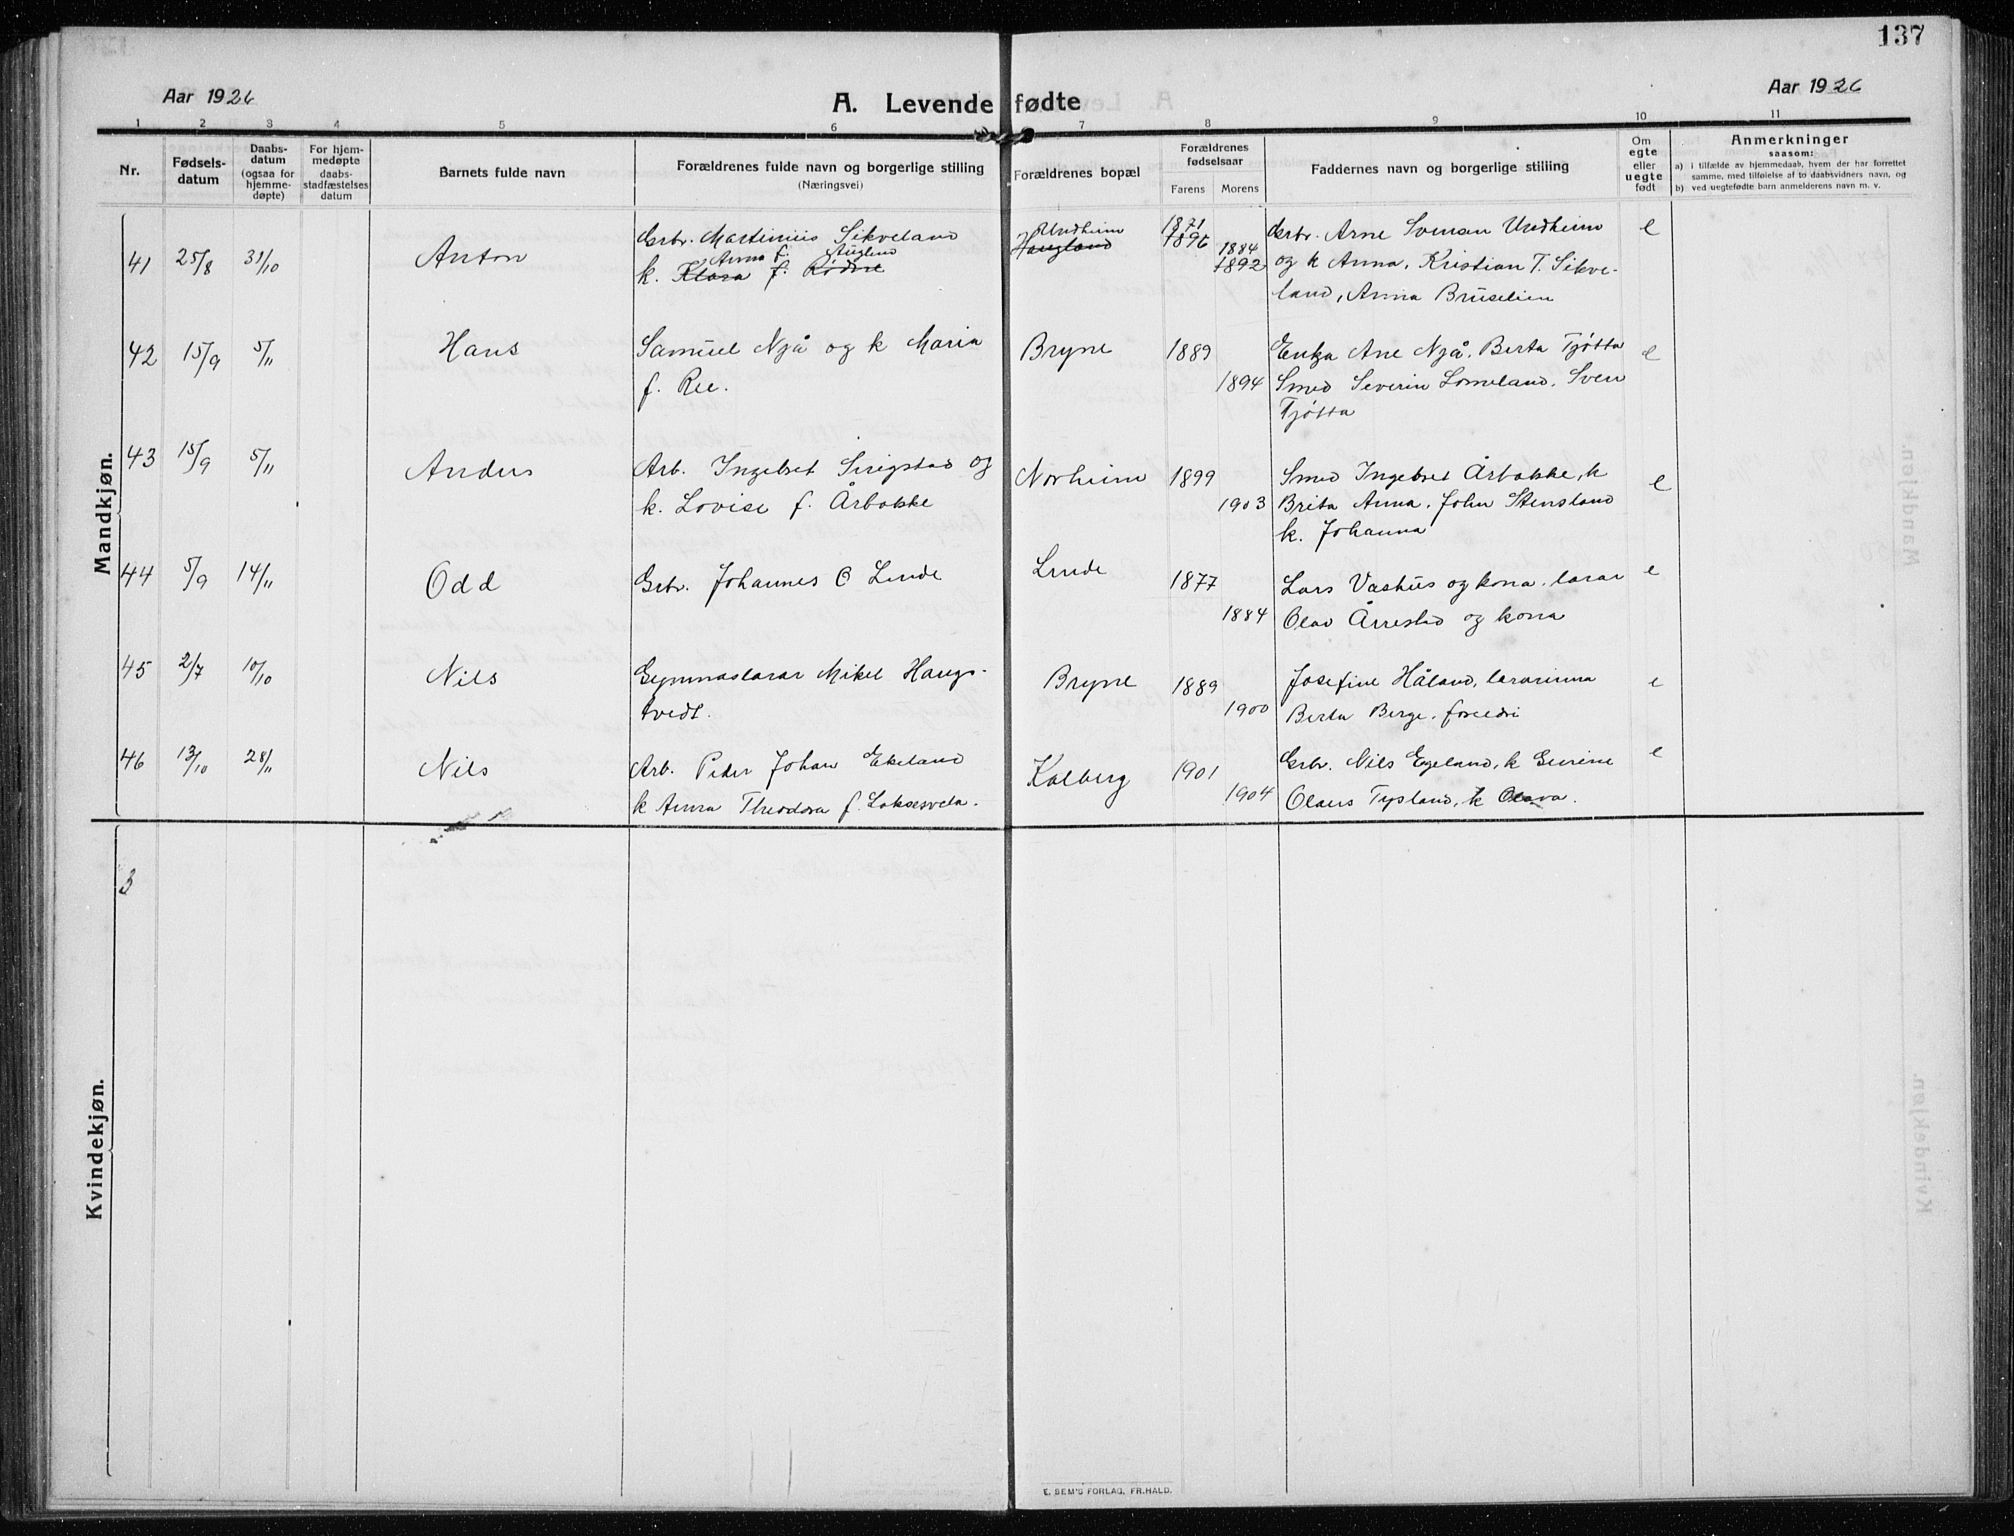 137
Aar 1926
A. Levende fødte
Aar 1926
1 2 3 4 5 6 7 8 9 10 11
Nr.
Fødsels-
datum
Daabs-
datum
(ogsaa for
hjemme-
døpte)
For hjem-
medøpte
daabs-
stadfæstelses
datum
Barnets fulde navn
Forældrenes fulde navn og borgerlige stilling
(Næringsvei)
Forældrenes bopæl
Forældrenes
fødselsaar
Farens Morens
Faddernes navn og borgerlige stilling
Om
egte
eller
uegte
født
Anmerkninger
saasom:
a) i tilfælde av hjemmedaab, hvem der har forrettet
samme, med tilføielse af to daabsvidners navn, og
b) ved uegtefødte barn anmelderens navn m. v.
Mandkjøn.
41 25/8 31/10 Anton
Grbr. Martinius Sikveland
Anna f. Auglend
k. Klara f. Rødne
Undheim
Haugland
1871
1896
1884
1892
Grbr. Arne Soman Undheim
og k Anna, Kristian T. Sikve-
land, Anna Bruselien
e
42 15/9 5/11 Hans
Samuel Njå og k Maria
f. Ree.
Bryne 1889
1894
Enkja Ane Njå. Berta Tjøtta
Smed Severin Lomeland. Sven
Tjøtta
e
43 15/9 5/11 Anders
Arb. Ingebret Sirigstad og
k. Lovise f. Årbakke
Norheim 1899
1903
Smed Ingebret Årbakke, k
Brita Anna. John Stensland
k. Johanna
e
44 5/9 14/11 Odd
Grbr. Johannes O Lende
Lende 1877
1884
Lars Vashus og kona. lærar
Olav Årrestad og kona
e
45 2/7 10/10 Nils
Gymnaslærar Mikel Haugs-
tvedt.
Bryne 1889
1900
Josefine Håland, lærarinna
Berta Berge. foreldri
e
46 13/10 28/11 Nils
Arb. Peder Johan Ekeland
k Anna Theodora f. Laksesvela.
Kalberg 1901
1904
Grbr. Nils Egeland, k Gurine
Olaus Tysland, k Olava.
e
Kvindekjøn.
3
E. SEM'S FORLAG, FR.HALD.